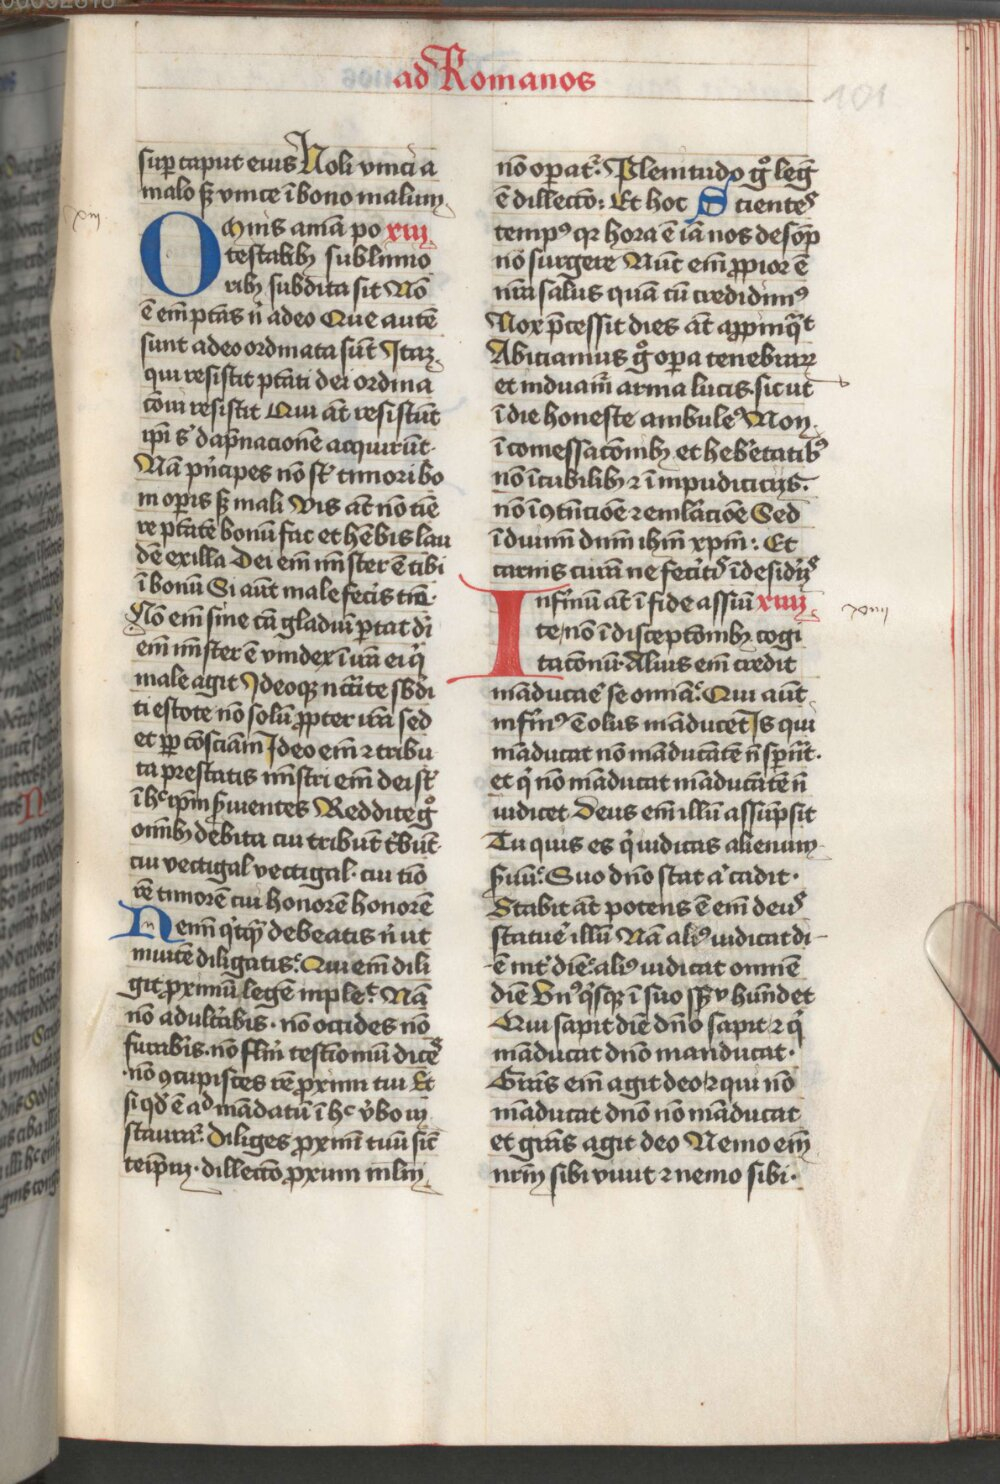 ad Romanos
101
sup̱ caput eius Noli vinci a
malo sꝫ vince ī bono malum
xiij
Omnis aīa po xiij
testatibꝫ sublimio
ribꝫ subdita sit Nō
ē em̄ ptās n̄ a deo Que autē
sunt a deo ordinata sūt Itaqꝫ
qui resistit ptāti dei ordina
cōni resistit Qui āt resistūt
ip̄i s̄ dāpnacionē acquirūt
Nā pͥncipes nō st̄ timori bo
ni operis sꝫ mali Vis āt nō tīe
re ptātē bonū fac et hēbis lau
dē ex illa Dei em̄ mīster ē tibi
ī bonū Si aūt male fecis tīe
Nō em̄ sine cā gladiū ꝑtat dī
em̄ mīster ē vindex ī irā ei qͥ
male agit Ideoqꝫ nccīte sbdi
ti estote nō solū ꝓpter irā sed
et ꝓp cōsciam Ideo em̄ ⁊ tribu
ta prestatis mīstri em̄ dei st̄
ī hͨ ip̄m s̄uientes Reddite gͦ
om̄ibꝫ debita cui tribut̄ tͥbut̄
cui vectigal vectigal · cui tīo
rē timorē cui honorē honorē
Nemī qͥtqͣꝫ debeatis n̄ ut
inuicē diligatis Qui em̄ dili
git ꝓximū legē implet Nā
nō adultabis · nō occides nō
furabis · nō flm̄ testīomū dices
· nō ꝯcupisces rē ꝓximi tui Et
si qd̄ ē ad mādatū ī hͨ v̄bo in
staurat̄ Diliges ꝓximū tuū sic̄
teip̄m · dilleccō ꝓximi malū
nō opat̄ · Plenitudo gͦ leḡ
ē dilleccō : Et hoc Scientes
tempꝰ qr hora ē iā nos de sop̄
no surgere Nūc em̄ ꝓpior ē
nr̄a salus quā cū credidimꝰ
Nox p̄cessit dies āt appīnqͣt
Abiciamus gͦ opa tenebrarꝝ
et induam̄ arma lucis · sic ut
ī die honeste ambulēꝰ Non
ī comessacōnibꝫ et hebrētatibꝰ
nō ī cubilibꝫ ⁊ ī impudiciciis
nō ī ꝯtn̄cioē ⁊ emlacioē Sed
īduim̄ dnm̄ ihm̄ xpm̄ : Et
carnis curā ne fecitͥ ī desidiis
Infirmū āt ī fide assum̄ xiiij
te nō ī disceptacōnibꝫ cogi
tacōnū · Alius em̄ credit
xiiij
māducare se om̄ia Qui aūt
infirmꝰ ē olus māducet Is qui
māducat nō māducātē n̄ spn̄at ·
et qͥ nō māducat māducātē n̄
iudicet Deus em̄ illū assūpsit
Tu quis es qͥ iudicas alienum
s̄uū Suo dn̄o stat aͭ cadit ·
Stabit āt potens ē em̄ deus
statue illū Nā aliꝰ iudicat di
ē int̄ diē aliꝰ iudicat omnē
diē Vnꝰqͥsqꝫ ī suo ssu hūndet
Qui sapit diē dn̄o sapit ⁊ qͥ
māducat dn̄o manducat ·
Grās em̄ agit deo ⁊ qui nō
māducat dn̄o nō māducat
et grās agit deo Nemo em̄
nrm̄ sibi viuit ⁊ nemo sibi ·